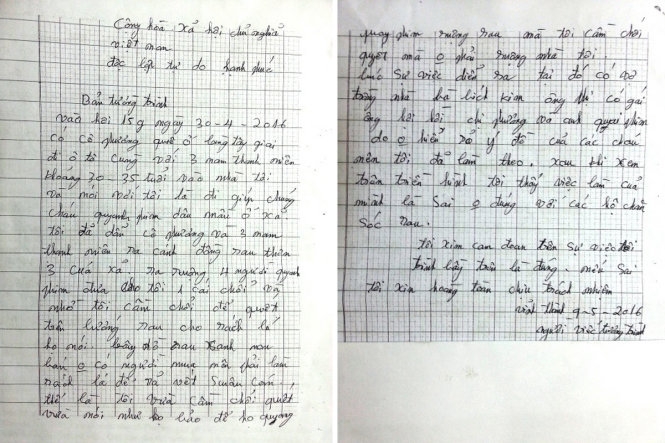 Cộng hòa xã hội chủ nghĩa
việt nam
độc lập tự do hạnh phúc
Bản tường trình
vào hồi 15g ngày 30-4-2016
có cô phương quê ở làng tây giai
đi ô tô cùng với 3 nam thanh niên
khoảng 30-35 tuổi vào nhà tôi
và nói với tôi là đi giúp chúng
cháu quay phim rau ở xã
tôi đã dẫn cô phương và 3 nam
thanh niên ra cánh đồng rau thôn
3 của xã ra ruộng 4 người quay
phim đưa cho tôi 1 cái chổi và
nhờ tôi cầm chổi để quét
trên luống rau cho rách lá
họ nói rau xanh non
bán o có người mua nên phải làm
rách lá để vả vết sâu
thế là tôi vừa cầm chổi quét
vừa nói như họ bảo để họ quay
quay phim ruộng rau mà tôi cầm chổi
quét mà o phải ruộng nhà tôi
lúc sự việc diễn ra tại đó có vợ
chồng nhà bà lích kiơn ông thì có gái
ông hồi hỏi chị phương và anh quay phim
do o hiểu rõ ý đồ của các cháu
nên tôi đã làm theo, xau khi xem
trên truyền hình tôi thấy việc làm của
mình là sai o đúng với các hộ chăm
sóc rau.
tôi xin cam đoan trên sự việc tôi
trình bày trên là đúng. nếu sai
tôi xin hoàng toàn chịu trách nhiệm
vĩnh thành 9-5-2016
người viết tường trình